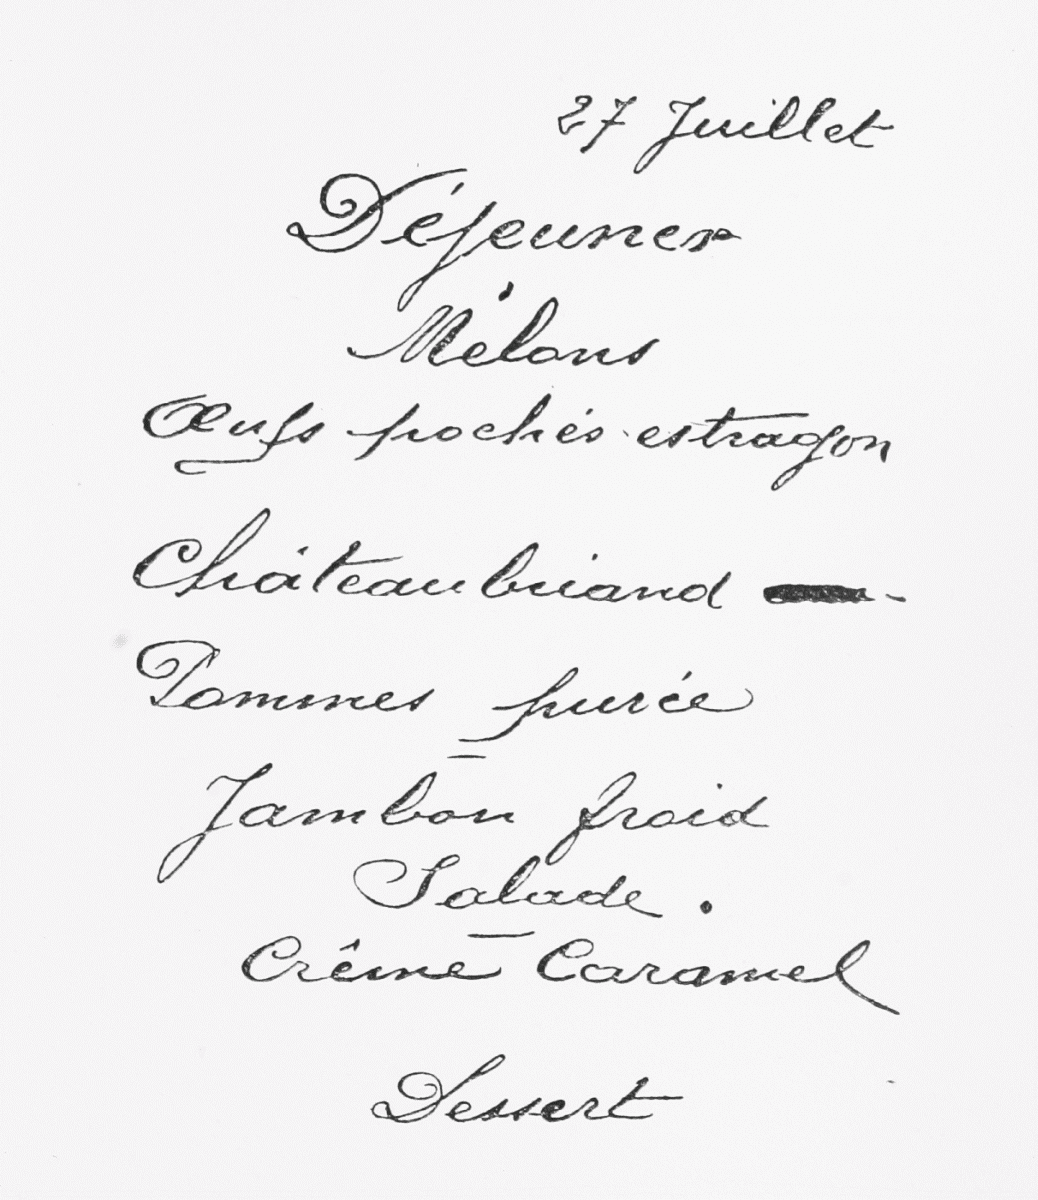 27 Juillet
Déjeuner
Mélons
Œufs pochés estragon
Châteaubriand
Pommes purée
Jambon froid
Salade.
Crême Caramel
Dessert